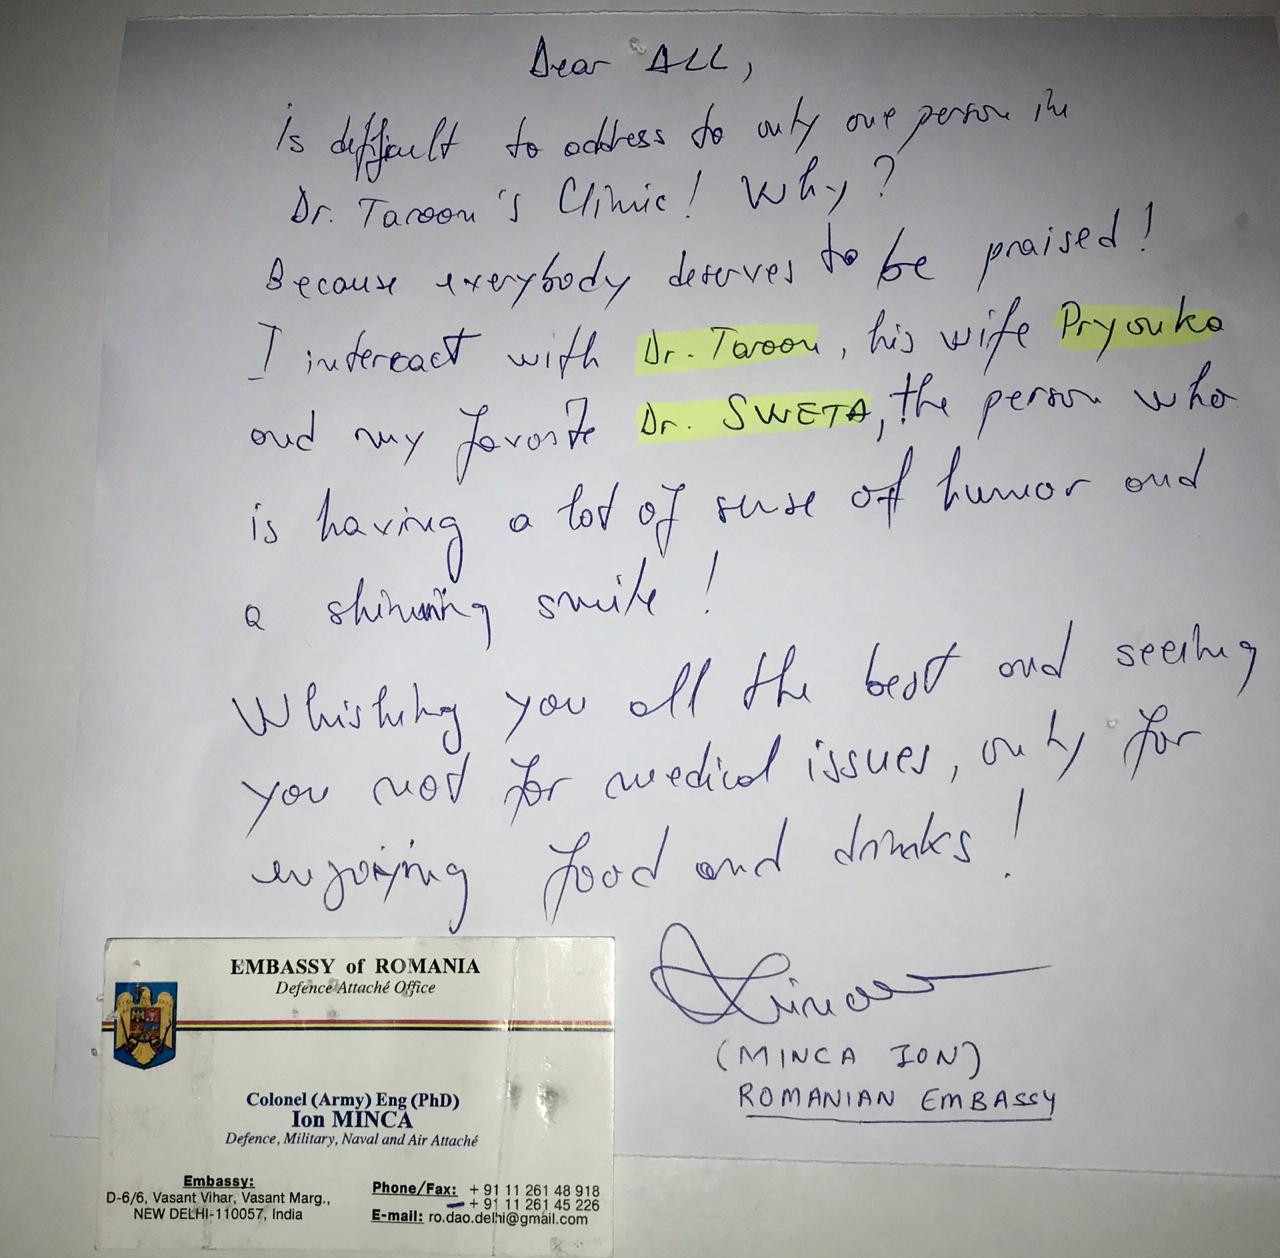 Dear ALL,
Is difficult to address to only one person in
Dr. Taroon's Clinic! Why?
Because everybody deserves to be praised!
I intereact with Dr. Taroon, his wife Pryanka
and my favorite Dr. SWETA, the person who
is having a lot of sense of humor and
a shinning smile!
Whishing you all the best and seeing
you not for medical issues, only for
enjoying food and drinks!
(MINCA ION)
ROMANIAN EMBASSY
EMBASSY of ROMANIA
Defence Attaché Office
Colonel (Army) Eng (PhD)
Ion MINCA
Defence, Military, Naval and Air Attaché
Embassy:
D-6/6, Vasant Vihar, Vasant Marg.,
NEW DELHI-110057, India
Phone/Fax: + 91 11 261 48 918
+ 91 11 261 45 226
E-mail: ro.dao.delhi@gmail.com